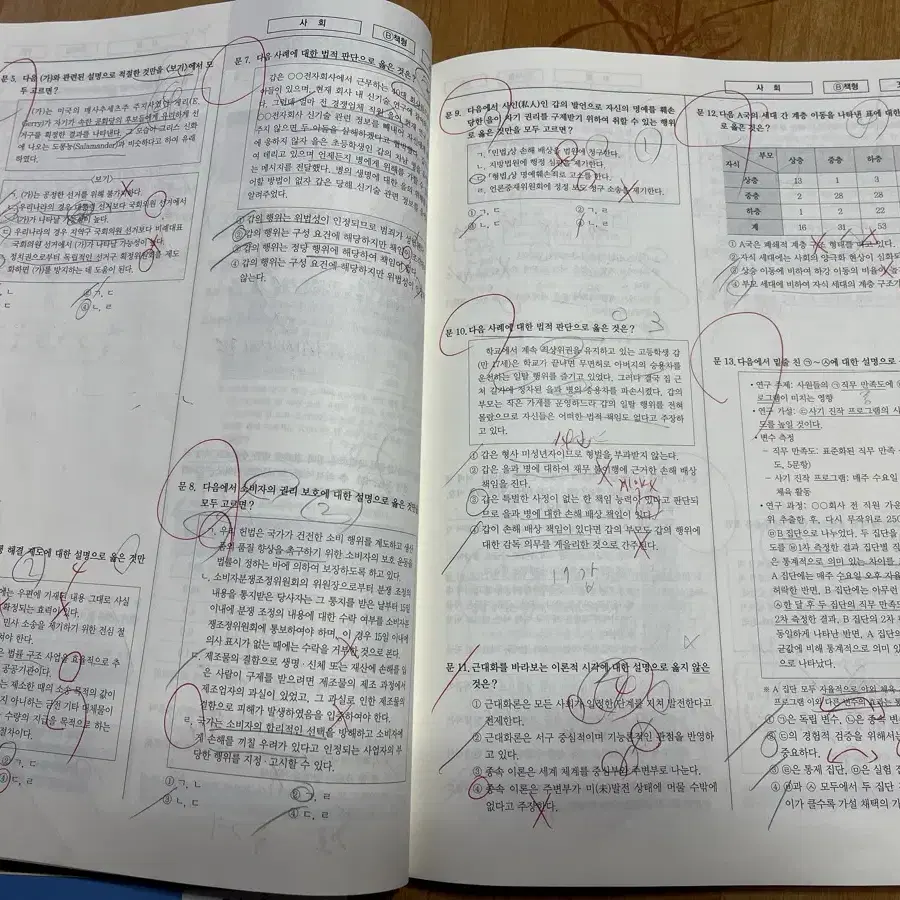 사 회
Ⓑ책형
문 5. 다음 (가)와 관련된 설명으로 적절한 것만을 <보기>에서 모
두 고르면?
(가)는 미국의 매사추세츠주 주지사였던 게리(E.
Gerry)가 자기가 속한 공화당의 후보들에게 유리하게 선
거구를 획정한 결과를 나타낸다. 그 모습이 그리스 신화
에 나오는 도롱뇽(Salamander)과 비슷하다고 하여 유래
하였다.
<보기>
(가)는 공정한 선거를 위해 불가피하다.
ㄴ. 우리나라의 경우 대통령 선거보다 국회의원 선거에서
(가)가 나타날 가능성이 높다.
ㄷ. 우리나라의 경우 지역구 국회의원 선거보다 비례대표
국회의원 선거에서 (가)가 나타날 가능성이 높다.
정치권으로부터 독립적인 선거구 획정위원회를 제도
화하면 (가)를 방지하는 데 도움이 된다.
② ㄱ, ㄷ
④ ㄴ, ㄹ
해결 제도에 대한 설명으로 옳은 것만
2
4
에는 우편에 기재된 내용 그대로 사실
확정되는 효력이 있다.
민사 소송을 제기하기 위한 전심 절
쳐야 한다.
은 법률 구조 사업을 효율적으로 추
공공기관이다.
는 제소한 때의 소송 목적의 값이
지 아니하는 금전 기타 대체물이
수량의 지급을 목적으로 하는
절차이다.
④ ㄷ, ㄹ
문 7. 다음 사례에 대한 법적 판단으로 옳은 것은?
갑은 ○○전자회사에서 근무하는 40대 회사원
아들이 있으며, 현재 회사 내 신기술 연구에
다. 그런데 얼마 전 경쟁업체 직원 을이
○○전자회사 신기술 관련 정보를 빼내어
주지 않으면 두 아들을 살해하겠다고 협박했
에 응하지 않자 을은 초등학생인 갑의 차남
려 데리고 있으며 언제든지 병에게 위해를 가할 수
는 메시지를 전달했다. 병의 생명에 대한 을의
어할 방법이 없자 갑은 당해 신기술 관련 정보를
알려주었다.
① 갑의 행위는 위법성이 인정되므로 범죄가
② 갑의 행위는 구성 요건에 해당하지만 책임
③ 갑의 행위는 정당 행위에 해당하여 책임이
④ 갑의 행위는 구성 요건에 해당하지만 위법성이
않는다.
문 8. 다음에서 소비자의 권리 보호에 대한 설명으로 옳은 것만을
모두 고르면?
2
ㄱ. 우리 헌법은 국가가 건전한 소비 행위를 계도하고 생산
품의 품질 향상을 촉구하기 위한 소비자의 보호 운동을
법률이 정하는 바에 의하여 보장하도록 하고 있다.
ㄴ. 소비자분쟁조정위원회의 위원장으로부터 분쟁 조정의
내용을 통지받은 당사자는 그 통지를 받은 날부터 15일
이내에 분쟁 조정의 내용에 대한 수락 여부를 소비자분
쟁조정위원회에 통보하여야 하며, 이 경우 15일 이내에
의사 표시가 없는 때에는 수락을 거부한 것으로 본다.
ㄷ. 제조물의 결함으로 생명·신체 또는 재산에 손해를 입
은 사람이 구제를 받으려면 제조물의 제조 과정에서
제조업자의 과실이 있었고, 그 과실로 인한 제조물의
결함으로 피해가 발생하였음을 입증하여야 한다.
ㄹ. 국가는 소비자의 합리적인 선택을 방해하고 소비자에
게 손해를 끼칠 우려가 있다고 인정되는 사업자의 부
당한 행위를 지정·고시할 수 있다.
① ㄱ, ㄴ
② ㄱ, ㄹ
③ ㄴ, ㄷ
④ ㄷ, ㄹ
사 회
Ⓑ책형
문 9. 다음에서 사인(私人)인 갑의 발언으로 자신의 명예를 훼손
당한 을이 자기 권리를 구제받기 위하여 취할 수 있는 행위
로 옳은 것만을 모두 고르면?
1
ㄱ. 「민법」상 손해 배상을 법원에 청구한다.
ㄴ. 지방법원에 행정 심판을 제기한다.
ㄷ. 「형법」상 명예훼손죄로 고소를 한다.
ㄹ. 언론중재위원회에 정정 보도 청구 소송을 제기한다.
① ㄱ, ㄷ
② ㄱ, ㄹ
③ ㄴ, ㄷ
④ ㄴ, ㄹ
3
문 10. 다음 사례에 대한 법적 판단으로 옳은 것은?
학교에서 계속 최상위권을 유지하고 있는 고등학생 갑
(만 17세)은 학교가 끝나면 무면허로 아버지의 승용차를
운전하는 일탈 행위를 즐기고 있었다. 그러다 결국 집 근
처 갓길에 정차된 을과 병의 승용차를 파손시켰다. 갑의
부모는 작은 가게를 운영하느라 갑의 일탈 행위를 전혀
몰랐으므로 자신들은 어떠한 법적 책임도 없다고 주장하
고 있다.
① 갑은 형사 미성년자이므로 형벌을 부과받지 않는다.
② 갑은 을과 병에 대하여 채무 불이행에 근거한 손해 배상
책임을 진다.
계약X
③ 갑은 특별한 사정이 없는 한 책임 능력이 있다고 판단되
므로 을과 병에 대한 손해 배상 책임이 있다.
④ 갑이 손해 배상 책임이 있다면 갑의 부모도 갑의 행위에
대한 감독 의무를 게을리한 것으로 간주된다.
문 11. 근대화를 바라보는 이론적 시각에 대한 설명으로 옳지 않은
것은?
4
① 근대화론은 모든 사회가 일정한 단계를 거쳐 발전한다고
전제한다.
② 근대화론은 서구 중심적이며 기능론적인 관점을 반영하
고 있다.
③ 종속 이론은 세계 체계를 중심부와 주변부로 나눈다.
④ 종속 이론은 주변부가 미(未)발전 상태에 머물 수밖에
없다고 주장한다.
사 회
Ⓑ책형
문 12. 다음 A국의 세대 간 계층 이동을 나타낸 표에 대한
로 옳은 것은?
부모
자식
상층 중층 하층
상층 13 1 3
중층 2 28 28
하층 1 2 22
계 16 31 53
① A국은 폐쇄적 계층 구조 형태를 띠고 있다.
② 자식 세대에는 사회의 양극화 현상이 심화
③ 상승 이동에 비하여 하강 이동의 비율이 높
④ 부모 세대에 비하여 자식 세대의 계층 구조가
문 13. 다음에서 밑줄 친 ㉠~㉦에 대한 설명으로
• 연구 주제: 사원들의 ㉠직무 만족도에
로그램이 미치는 영향
• 연구 가설: ㉡사기 진작 프로그램의 사
도를 높일 것이다.
• 변수 측정
- 직무 만족도: 표준화된 직무 만족
도, 5문항)
- 사기 진작 프로그램: 매주 수요일
체육 활동
• 연구 과정: ○○회사 전 직원 가운
위 추출한 후, 다시 무작위로 250
㉤B 집단으로 나누었다. 두 집단을
도를 ㉥1차 측정한 결과 집단별 직
은 통계적으로 의미 있는 차이를
A 집단에는 매주 수요일 오후 자율
허락한 반면, B 집단에는 아무런
㉦한 달 후 두 집단의 직무 만족도
2차 측정한 결과, B 집단의 2차
동일하게 나타난 반면, A 집단의
균값에 비해 통계적으로 의미 있
로 나타났다.
※ A 집단 모두 자율적으로 야외 체육
프로그램 이외 다른 변수의 효과는 통
① ㉠은 독립 변수, ㉡은 종속 변
② ㉢의 경험적 검증을 위해서는
중요하다.
③ ㉣은 통제 집단, ㉤은 실험 집
④ ㉥과 ㉦ 모두에서 두 집단
이가 클수록 가설 채택의 가